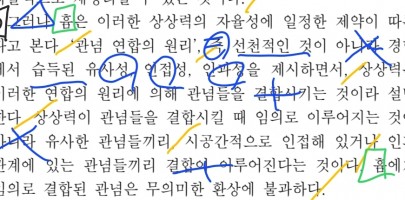 그러나 흄은 이러한 상상력의 자율성에 일정한 제약이 따
다고 본다. '관념 연합의 원리', 즉 선천적인 것이 아니라 경
에서 습득된 유사성, 인접성, 인과성을 제시하면서, 상상력
이러한 연합의 원리에 의해 관념들을 결합시기는 것이라 설
한다. 상상력이 관념들을 결합시킬 때 임의로 이루어지는 것이
아니라 유사한 관념들끼리, 시공간적으로 인접해 있거나 인
관계에 있는 관념들끼리 결합이 이루어진다는 것이다. 흄에
임의로 결합된 관념은 무의미한 환상에 불과하다.